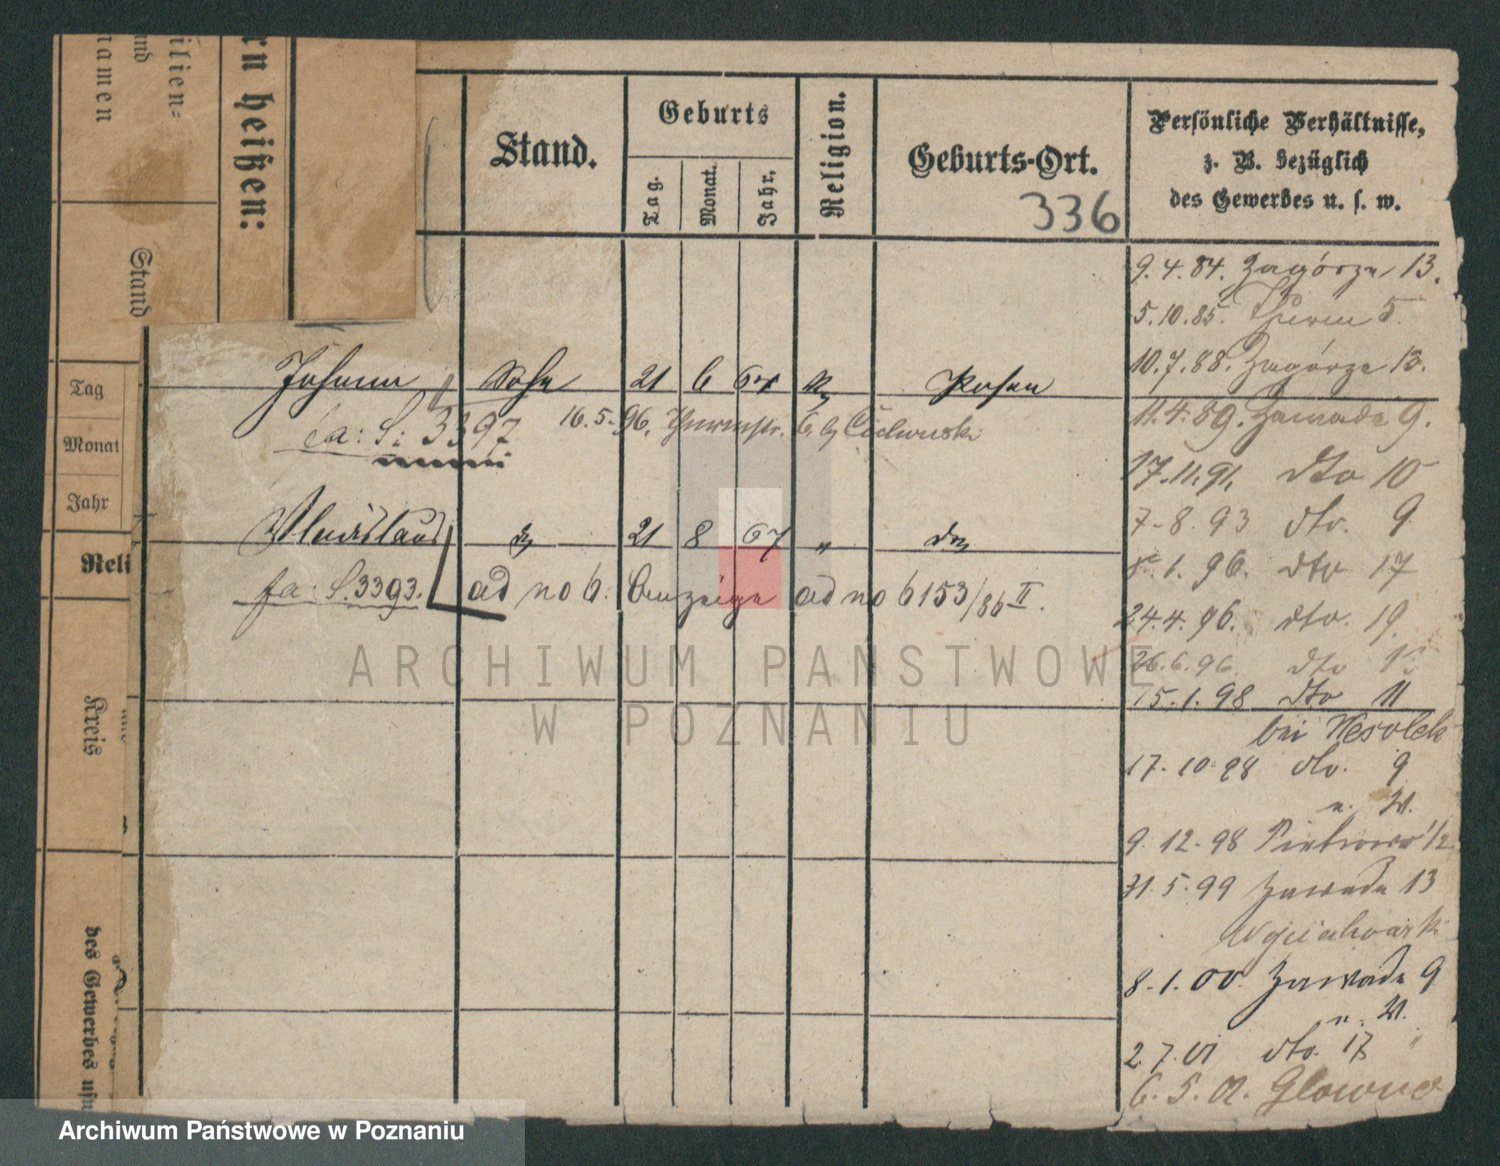 ilien=
und
tamen
rn heißen:
Stand
Tag
Monat
Jahr
Reli
Kreis
des Gewerbes u
Stand.
Geburts
Tag.
Monat.
Jahr.
Religion.
Geburts-Ort.
336
Persönliche Verhältnisse,
z. B. bezüglich
des Gewerbes u. s. w.
9.4.84. Zagórze 13.
5.10.85. Thurm 5.
10.7.88. Zagórze 13.
11.4.89. Zawade 9.
17.11.91. dto 10
7-8.93 dto. 9
1.96. dto 17
24.4.96. dto. 19.
26.6.96. dto
15.1.98 dto 11
bei Wesolek
17-10-98 dto. 9
n. W.
9.12.98 Piotrowo 1/2
31.5.99 Zawade 13
8.1.00. Zawade 9
n. W.
2.7.01 dto. 17
6.5.02. Glowno
Johann Sohn 21 6 64 Posen
fa: S: 3397 16.5.96. Thurmstr. 6. b/
Wladislaus do 21 8 67 " do
fa: S. 3393. ad no 6: Anzeige ad no 6153/86 II.
ARCHIWUM PAŃSTWOWE
W POZNANIU
Archiwum Państwowe w Poznaniu